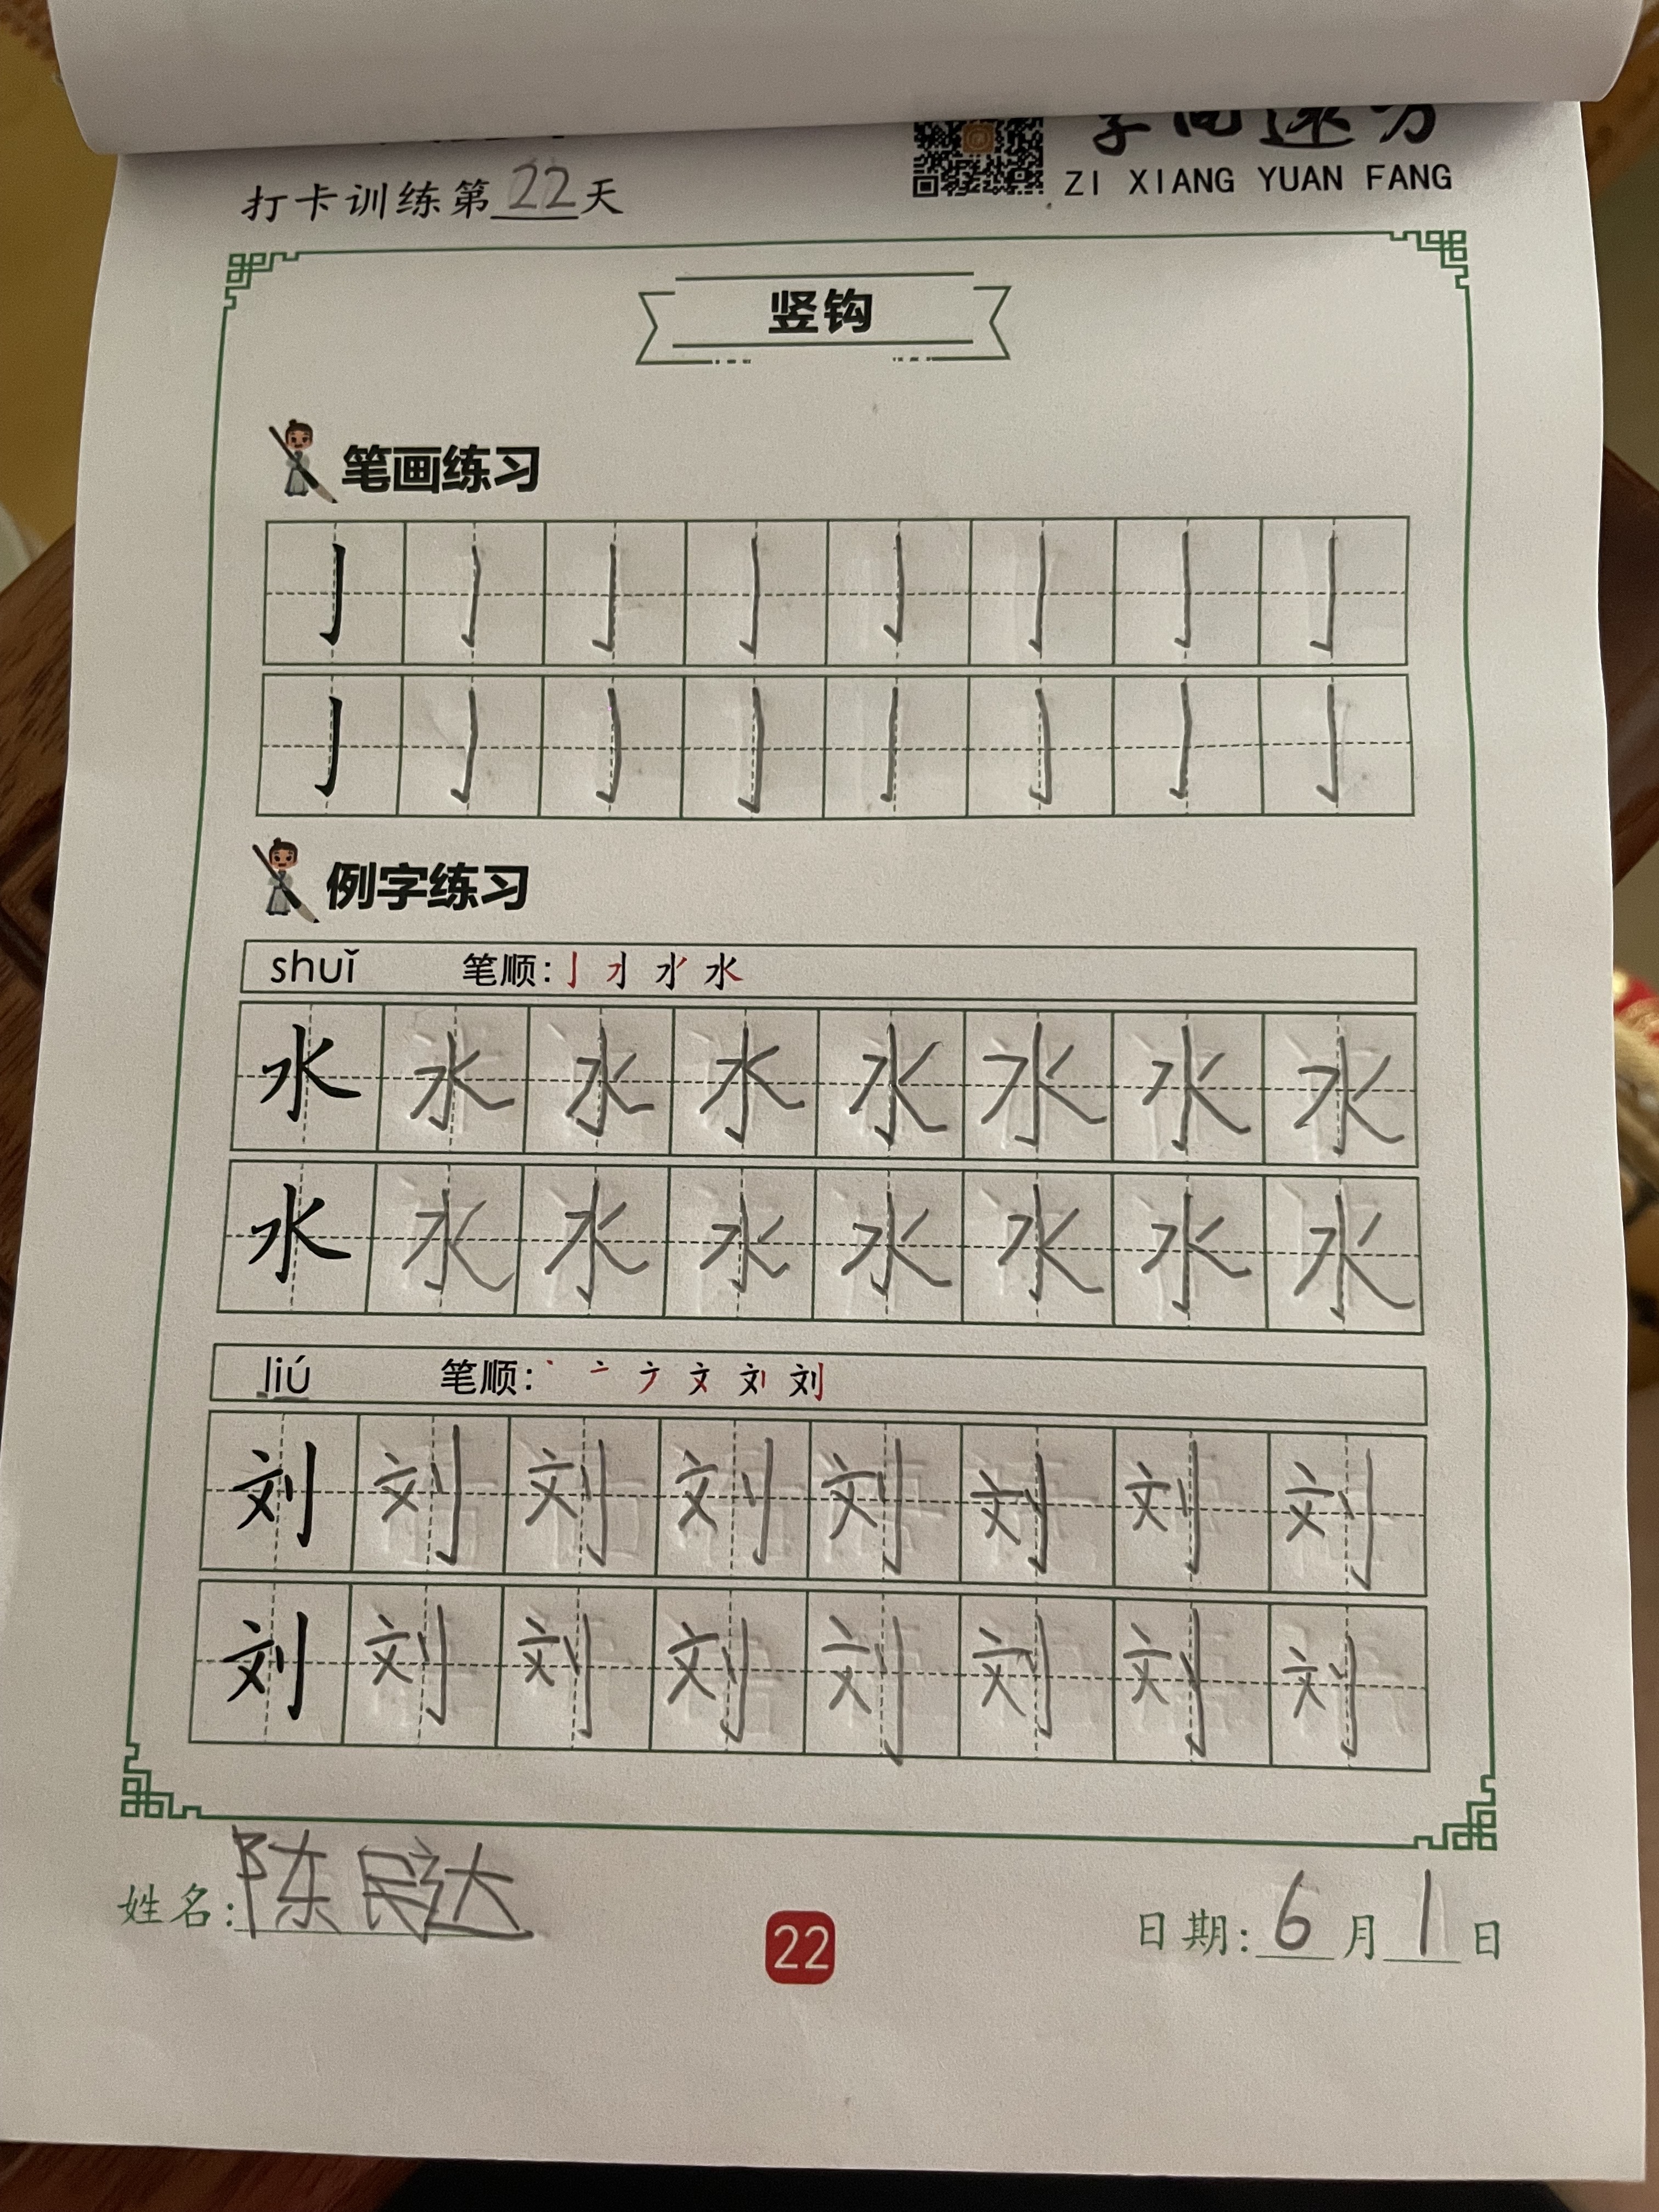 字向远方
ZI XIANG YUAN FANG
打卡训练第22天
竖钩
笔画练习
亅 亅 亅 亅 亅 亅 亅 亅
亅 亅 亅 亅 亅 亅 亅 亅
例字练习
shuǐ 笔顺:
水 水 水 水 水 水 水 水
水 水 水 水 水 水 水 水
liú 笔顺:
刘 刘 刘 刘 刘 刘 刘 刘
刘 刘 刘 刘 刘 刘 刘 刘
姓名:陈民达
22
日期:6月1日